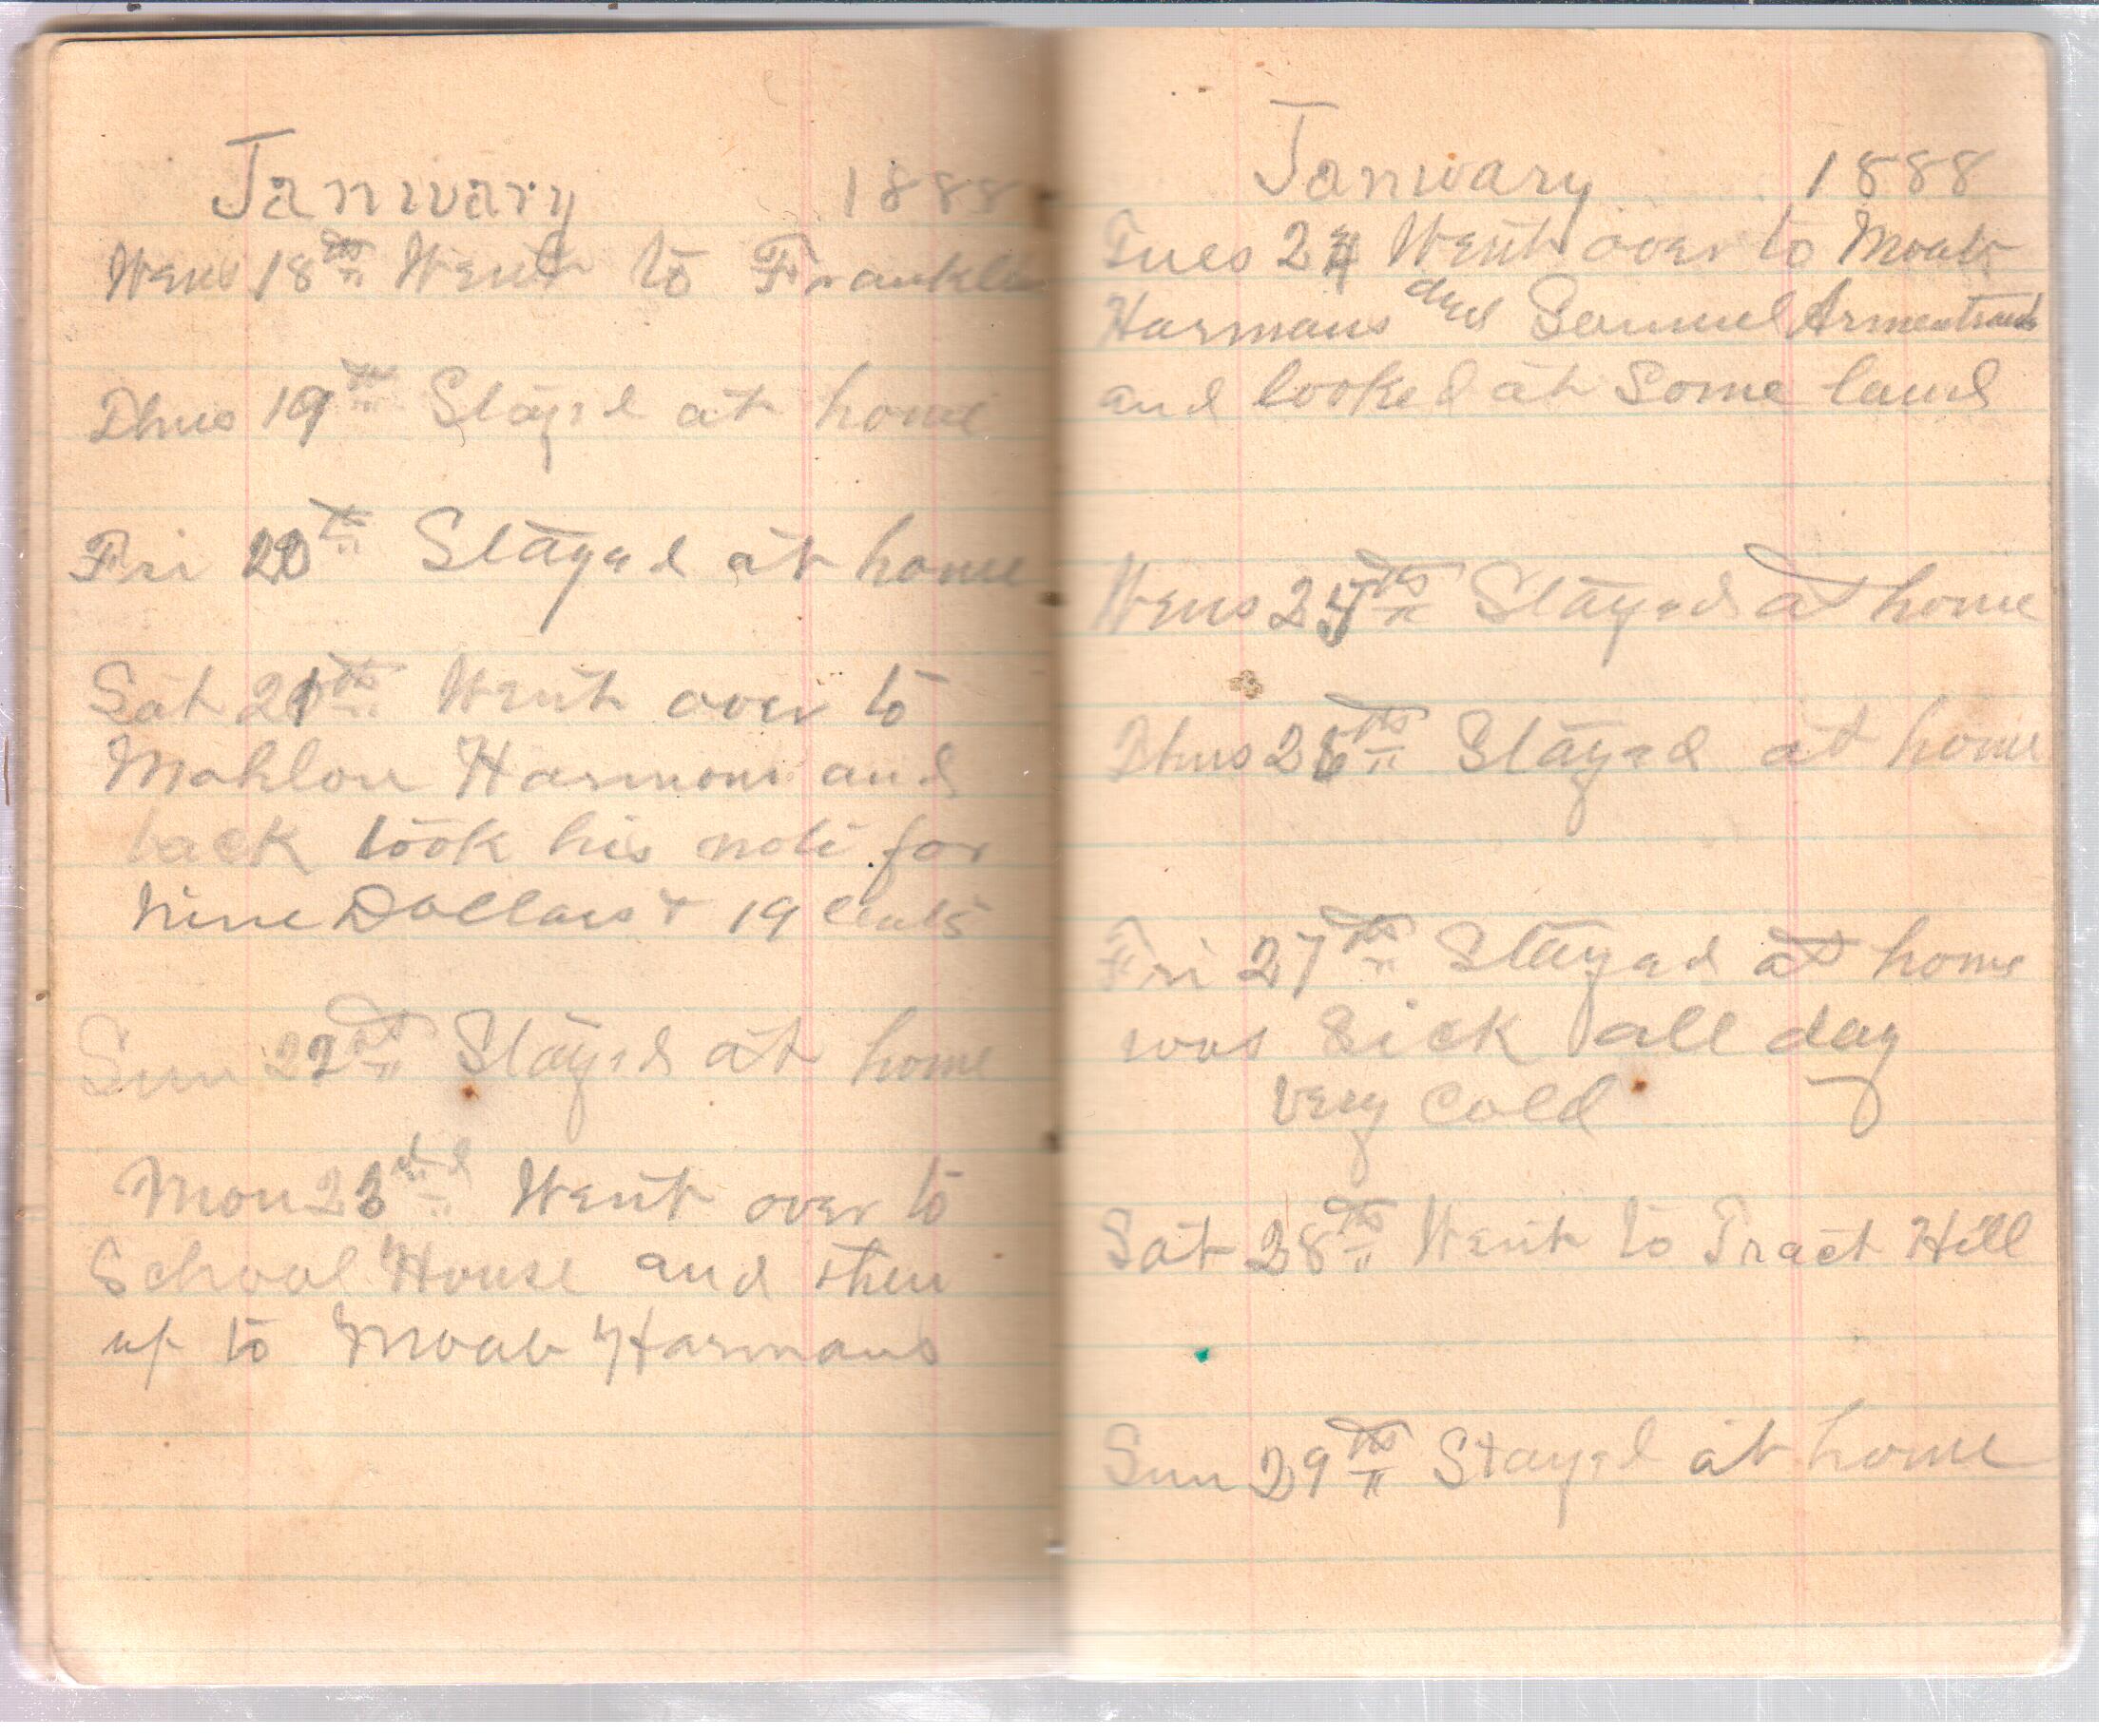 January 1888
Wens 18th Went to Franklin
Thus 19th Stayed at home
Fri 20th Stayed at home
Sat 21th Went over to
Mahlon Harmons and
back took his note for
Nine Dollars + 19 Cents
Sun 22th Stayed at home
Mon 23rd Went over to
School House and then
up to Moab Harmans
January 1888
Tues 24 Went over to Moab
Harmans and Samuel Armentrouts
and looked at Some land
Wens 25th Stayed at home
Thus 26th Stayed at home
Fri 27th Stayed at home
was Sick all day
very cold
Sat 28th Went to Tract Hill
Sun 29th Stayed at home